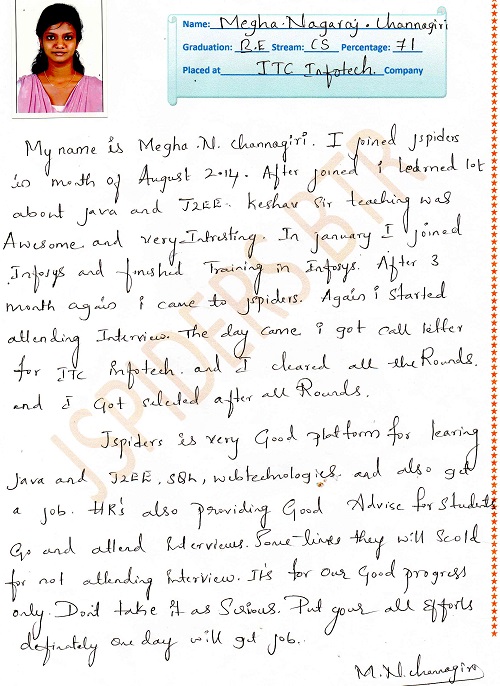 Name: Megha. Nagaraj. Channagiri
Graduation: B.E Stream: CS Percentage: 71
Placed at ITC Infotech. Company
My name is Megha .N. channagiri. I joined jspiders
in month of August 2014. After joined i learned lot
about java and J2EE. keshav Sir teaching was
Awesome and very Intresting. In january I joined
Infosys and finished Training in Infosys. After 3
month again i came to jspiders. Again i started
attending Interview. The day came i got call letter
for ITC infotech. and I cleared all the Rounds.
and I Got selected after all Rounds.
Jspiders is very Good platform for learing
Java and J2EE, SQL, webtechnologies. and also get
a job. HR's also providing Good Advise for students
Go and attend Interviews. Some-times they will scold
for not attending interview. It's for our Good progress
only. Don't take it as Serious. Put your all Efforts
definately one day will get job.
M.N.channagiri
JSPIDERS BTR